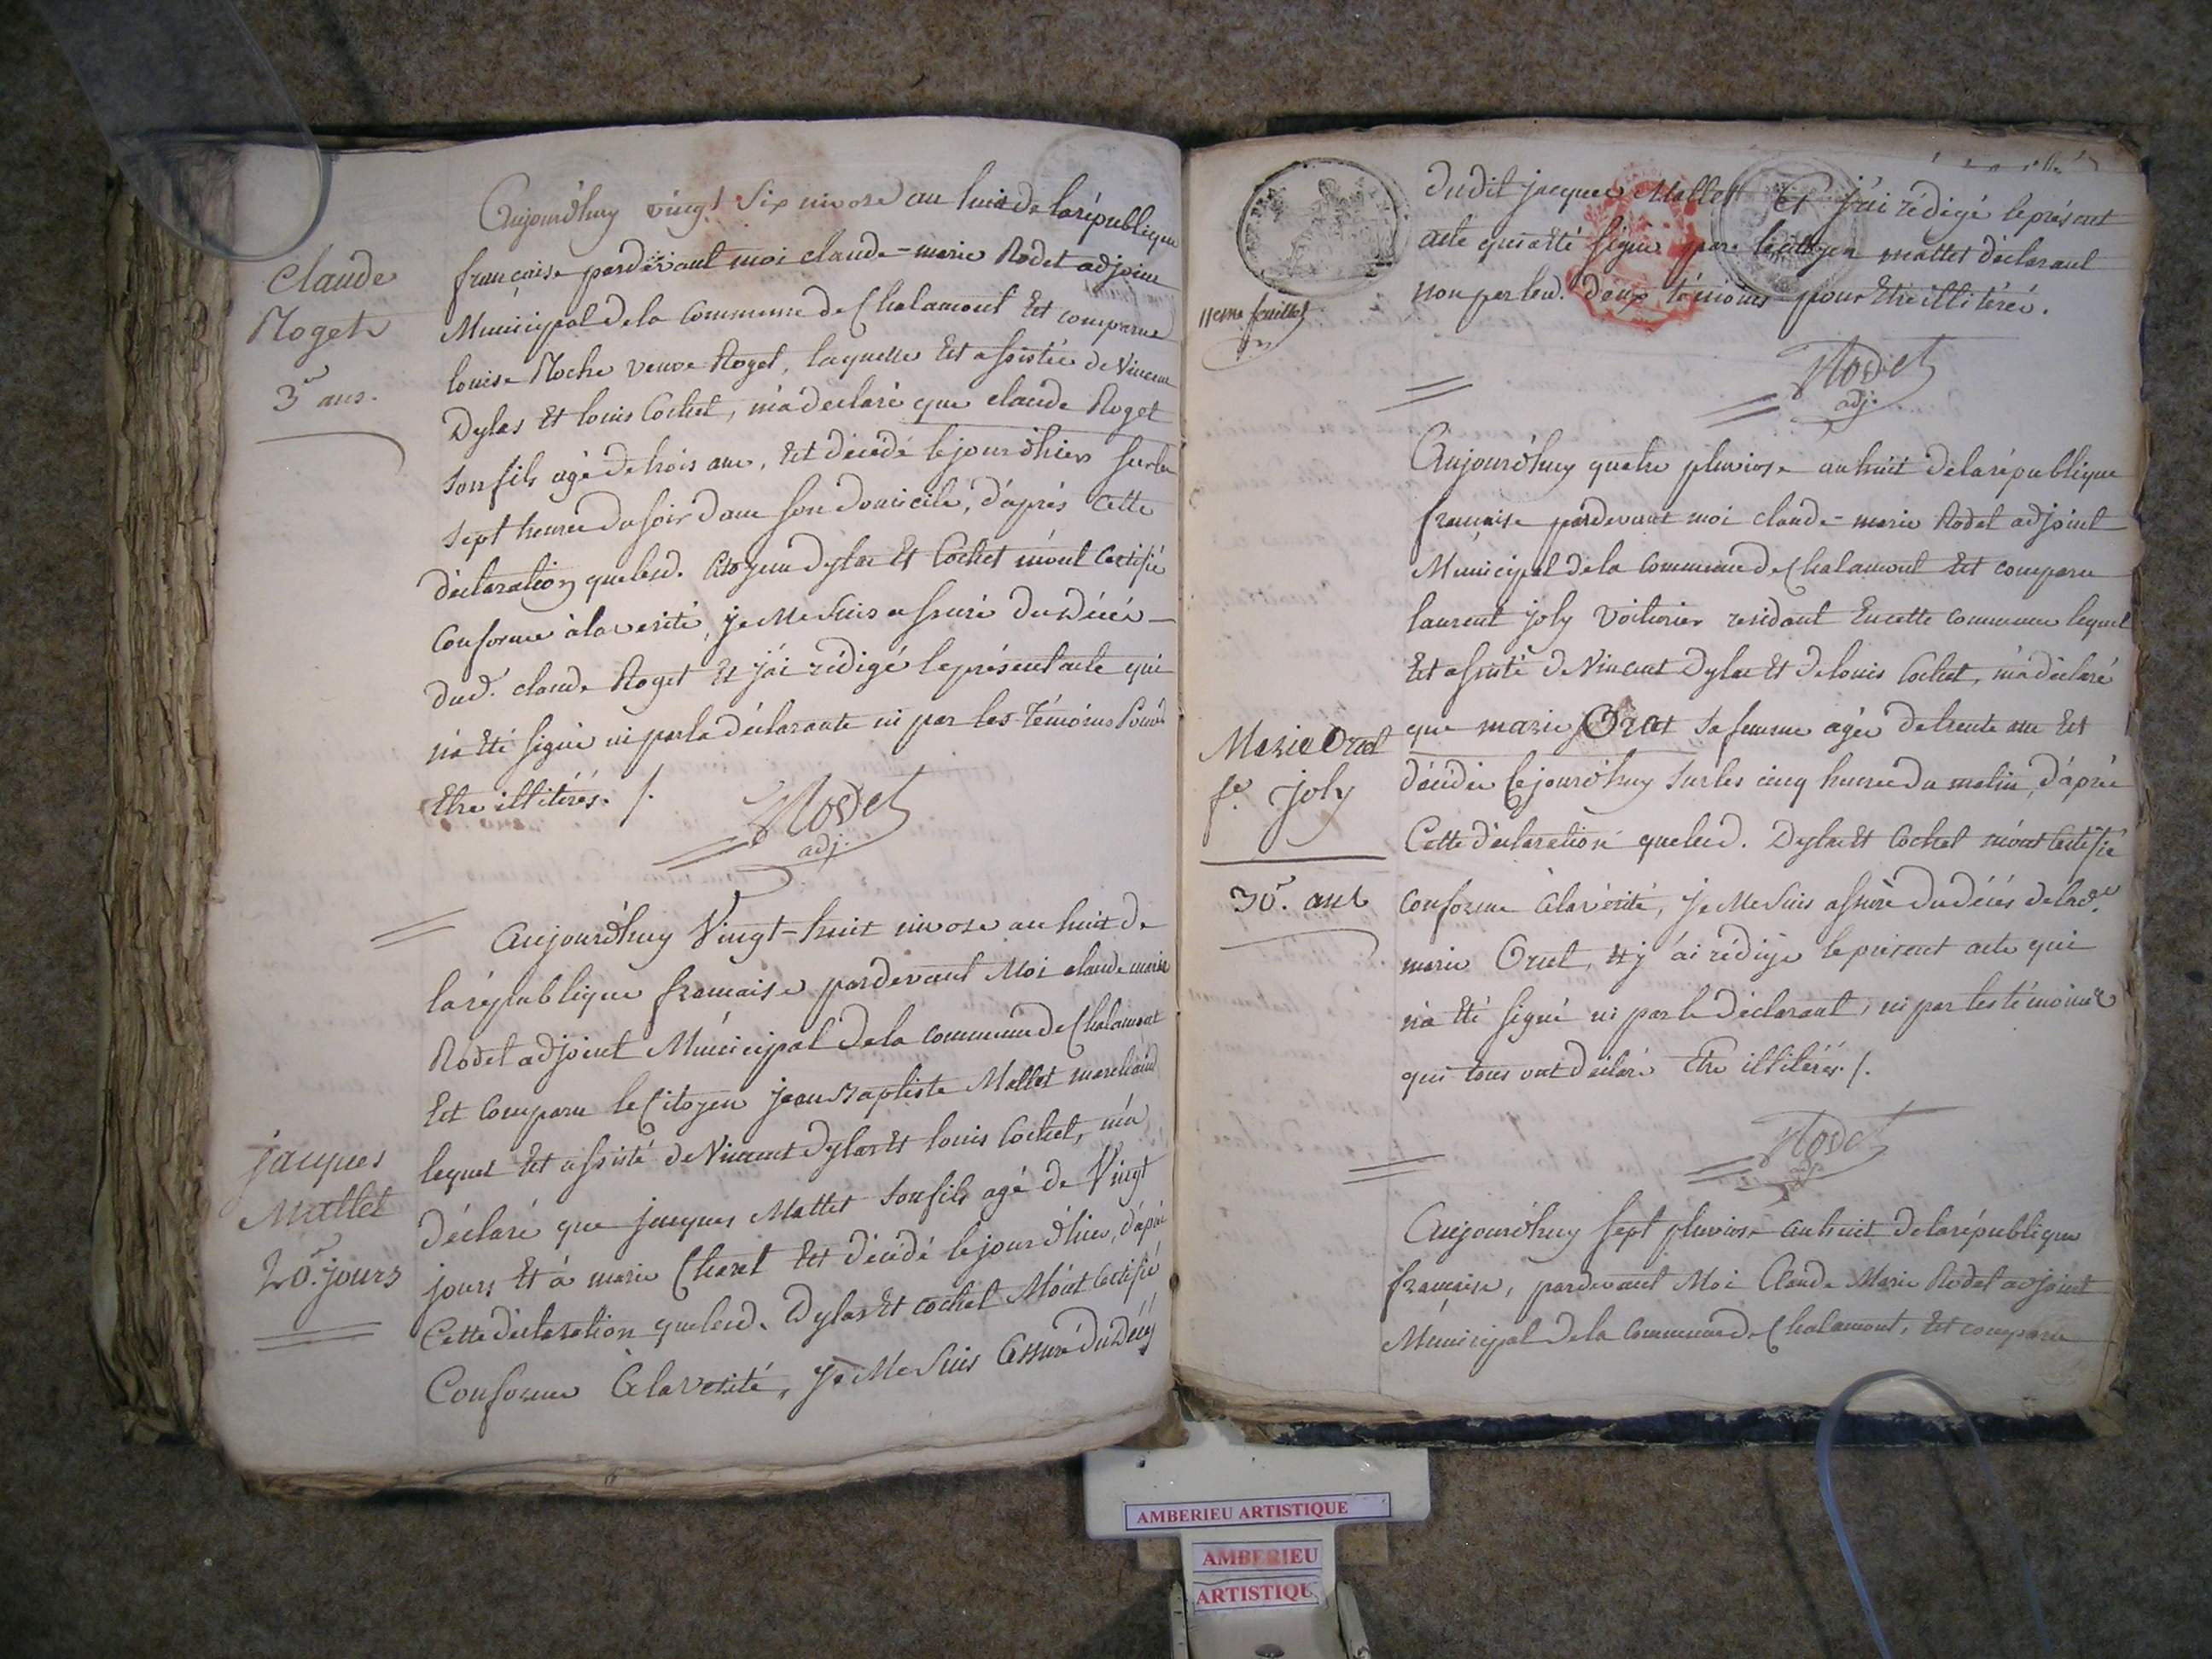 Claude
Roget
3 ans.
Aujourd'huy vingt Six nivose an huit de la république
française pardevant moi claude-marie Rodet adjoint
Municipal de la Commune de Chalamont Est comparue
louise Roche veuve Roget, laquelle Est assistée de Vincent
Dylas Et louis Cochet, m'a declaré que claude Roget
son fils agé de trois ans, Est décédé le jour d'hier sur les
sept heures du soir dans son domicile, d'après cette
déclaration que lesd. Citoyens Dylas Et Cochet m'ont certifié
Conforme à la verité, je Me Suis assuré du Décés
dud. claude Roget Et j'ai rédigé le présent acte qui
n'a Eté signé ni par la déclarante ni par les Témoins Pour
Etre illitérés. /.
Rodet
adj.
jacques
Mallet
20. jours
Aujourd'huy Vingt-huit nivose an huit de
la république francaise pardevant Moi claude marie
Rodet adjoint Municipal de la commune de Chalamont
Est Comparu le Citoyen jean Baptiste Mallet marchand
lequel Est assisté de Vincent Dylas Et louis Cochet, m'a
déclaré que jacques Mallet son fils agé de Vingt
jours Et à marie Charel Est décédé le jour d'hier, d'après
Cette déclaration que lesd. Dylas Et cochet M'ont Certifié
Conforme à la verité, je Me Suis Assuré du Décés
11eme feuillet
dudit jacques Mallet Et j'ai rédigé le présent
acte qui a été signé par le citoyen mallet déclarant
non par lesd. deux témoins pour Etre illitérés.
Rodet
adj.
Marie Orset
fe. joly
30. ans
Aujourd'huy quatre pluviose an huit de la république
francaise pardevant moi claude-marie Rodet adjoint
Municipal de la Commune de Chalamont Est comparu
laurent joly Voiturier residant En cette commune lequel
Est assisté de Vincent Dylas Et de louis Cochet, m'a déclaré
que marie sa femme agée de trente ans Est
décédée le jour d'huy sur les cinq heures du matin, d'après
Cette déclaration que lesd. Dylas Et Cochet m'ont certifié
conforme à la vérité, je Me Suis assuré du décés de lade.
marie Et j'ai rédigé le présent acte qui
n'a Eté signé ni par le déclarant, ni par les témoins
qui tous ont déclaré Etre illitérés. /.
Rodet
adj.
Aujourd'huy sept pluviose an huit de la république
francaise, pardevant Moi Claude Marie Rodet adjoint
Municipal de la Commune de Chalamont, Est comparu
AMBERIEU ARTISTIQUE
AMBERIEU
ARTISTIQU